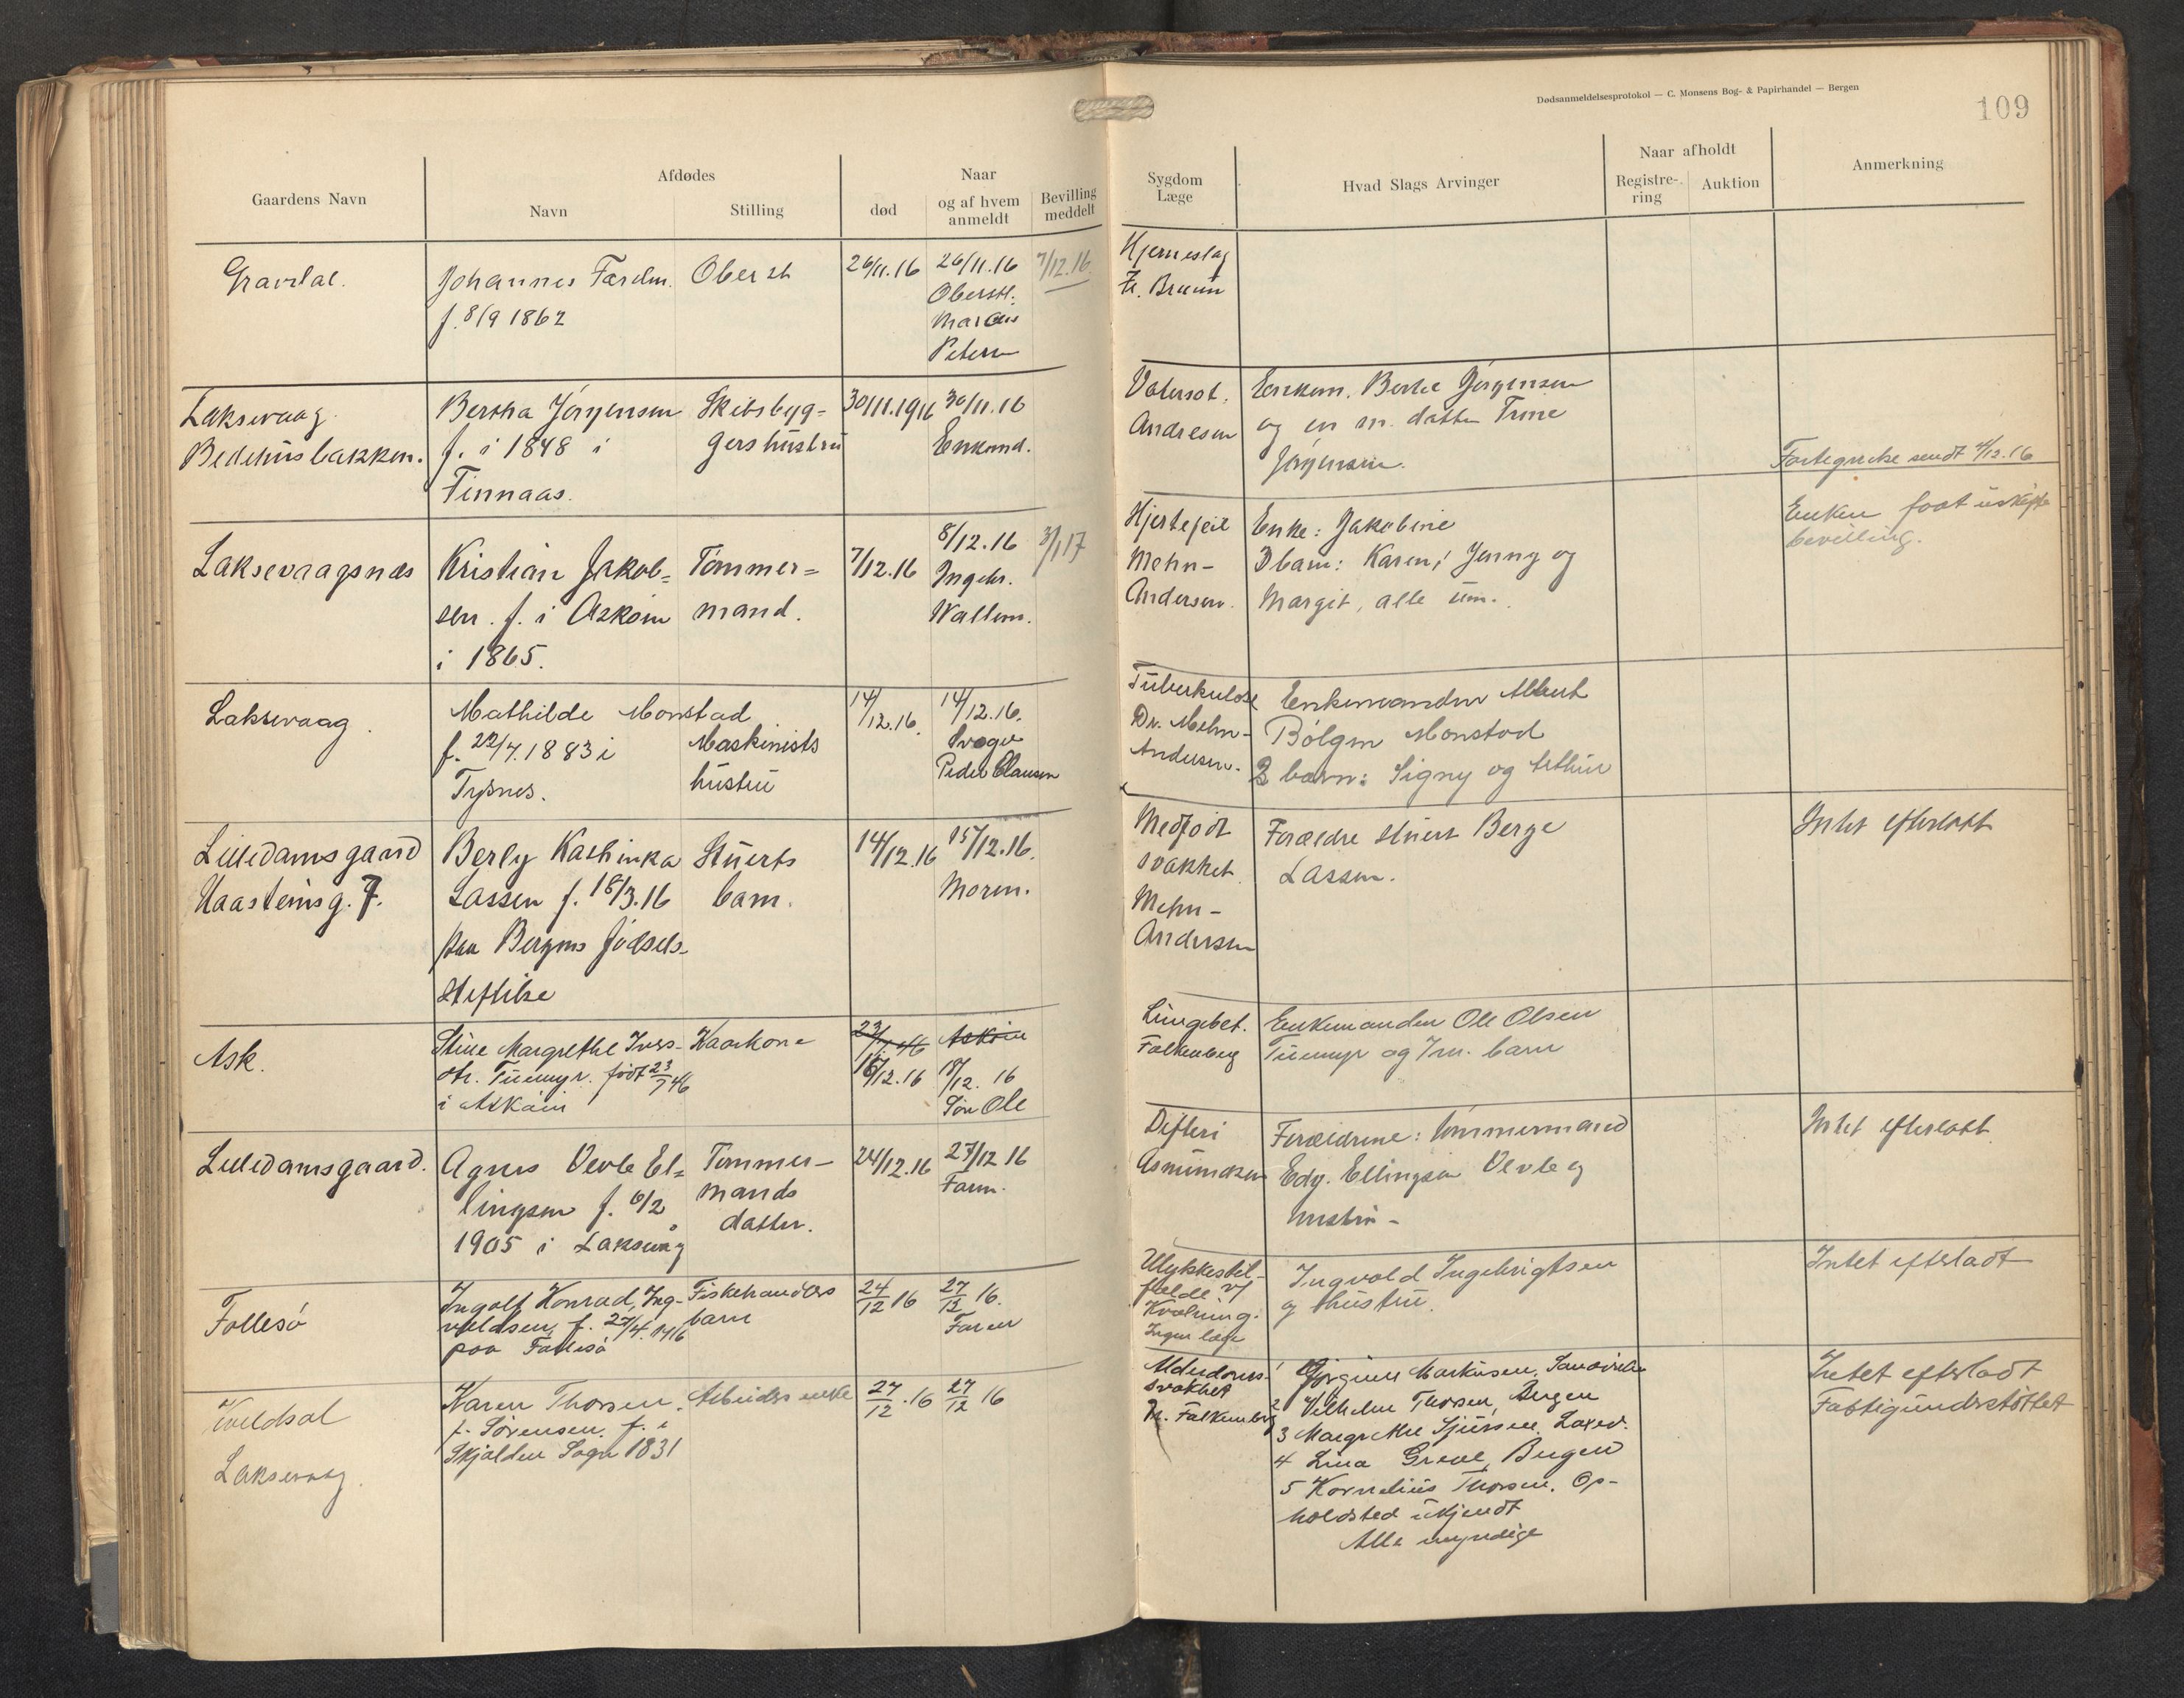 Dødsanmeldelsesprotokol — C. Monsens Bog- & Papirhandel — Bergen
109
Gaardens Navn
Afdødes
Navn
Stilling
Naar
død
og af hvem anmeldt
Bevilling meddelt
Sygdom
Læge
Hvad Slags Arvinger
Naar afholdt
Registre-
ring
Auktion
Anmerkning
Gravdal.
Johannes
f. 8/9 1862
Oberst
26/11.16
26/11.16
Oberstl.
Marcus
Petersen
7/12.16.
Hjerneslag
Fr. Bruun
Laksevaag
Bedehusbakken.
Bertha Jørgensen
f. i 1848 i
Finnaas.
Skibsbyg=
gershustru
30/11.1916
30/11.16
Enkemd.
Vatersot.
Andresen
Enkem. Bertel Jørgensen
og en m. datter Trine
Jørgensen.
Fortegnelse sendt 4/12.16
Laksevaagsnæs
Kristian Jakob=
sen. f. i Askøin
i 1865.
Tømmer=
mand.
7/12.16
8/12.16
Ingebr.
Wallem.
3/1 17
Hjertefeil
Mehn-
Andersen.
Enke: Jakobine
3 barn: Karen, Jenny og
Margit, alle um.
Enken faat uskifte
bevilling.
Laksevaag.
Mathilde Monstad
f. 22/7.1883 i
Tysnes.
Maskinists
hustru
14/12.16.
14/12.16.
Svoger
Peder Clausen
Tuberkulose
Dr. Mehn-
Andersen.
Enkemanden Albert
Bølgen Monstad
2 barn: Signy og Arthur
Lilledamsgaard
Haasteinsg. 7.
Berly Kathinka
Lassen f. 18/3.16
paa Bergens fødsels-
stiftelse
Stuerts
barn.
14/12.16
15/12.16.
Moren.
Medfødt
svakhet
Mehn-
Andersen
Forældre stuert Berge
Lassen.
Intet efterlatt
Ask.
Stine Margrethe Ivers-
dtr. Tuemyr. født 23/7 46
i Askøin
Kaarkone
23/7 46
16/12.16
Askøin
18/12. 16
Søn Ole
Lungebet.
Falkenberg
Enkemanden Ole Olsen
Tuemyr og 7 m. barn
Lilledamsgaard.
Agnes Vevle El=
lingsen f. 6/2
1905 i Laksevåg
Tømmer-
mands
datter.
24/12.16
27/12 16
Faren.
Difteri
Asmundsen
Forældrene: Tømmermand
Edv. Ellingsen Vevle og
hustru-
Intet efterlatt
Follesø
Ingolf Konrad Ing-
valdsen, f. 27/4.1916
paa Follesø
Fiskehandlers
barn
24/12 16
27/12 16.
Faren
Ulykkestil-
fælde v/
Kvælning.
Ingen læge
Ingvald Ingebrigtsen
og hustru.
Intet efterladt
Laksevaag.
Karen Thorsen.
f. Sørensen. f. i
Skjolden Sogn 1831
Arbeiders enke
27/12.16
27/12 16
Alderdoms-
svakhet
Dr. Falkenberg
1 Jørgine Markusen, Sandviken
2 Vilhelm Thorsen, Bergen
3 Margrethe Sjursen, Laxev.
4 Lina Greve, Bergen
5 Kornelius Thorsen. Op-
holdsted ukjendt
Alle myndige
Intet efterladt
Fattigunderstøttet